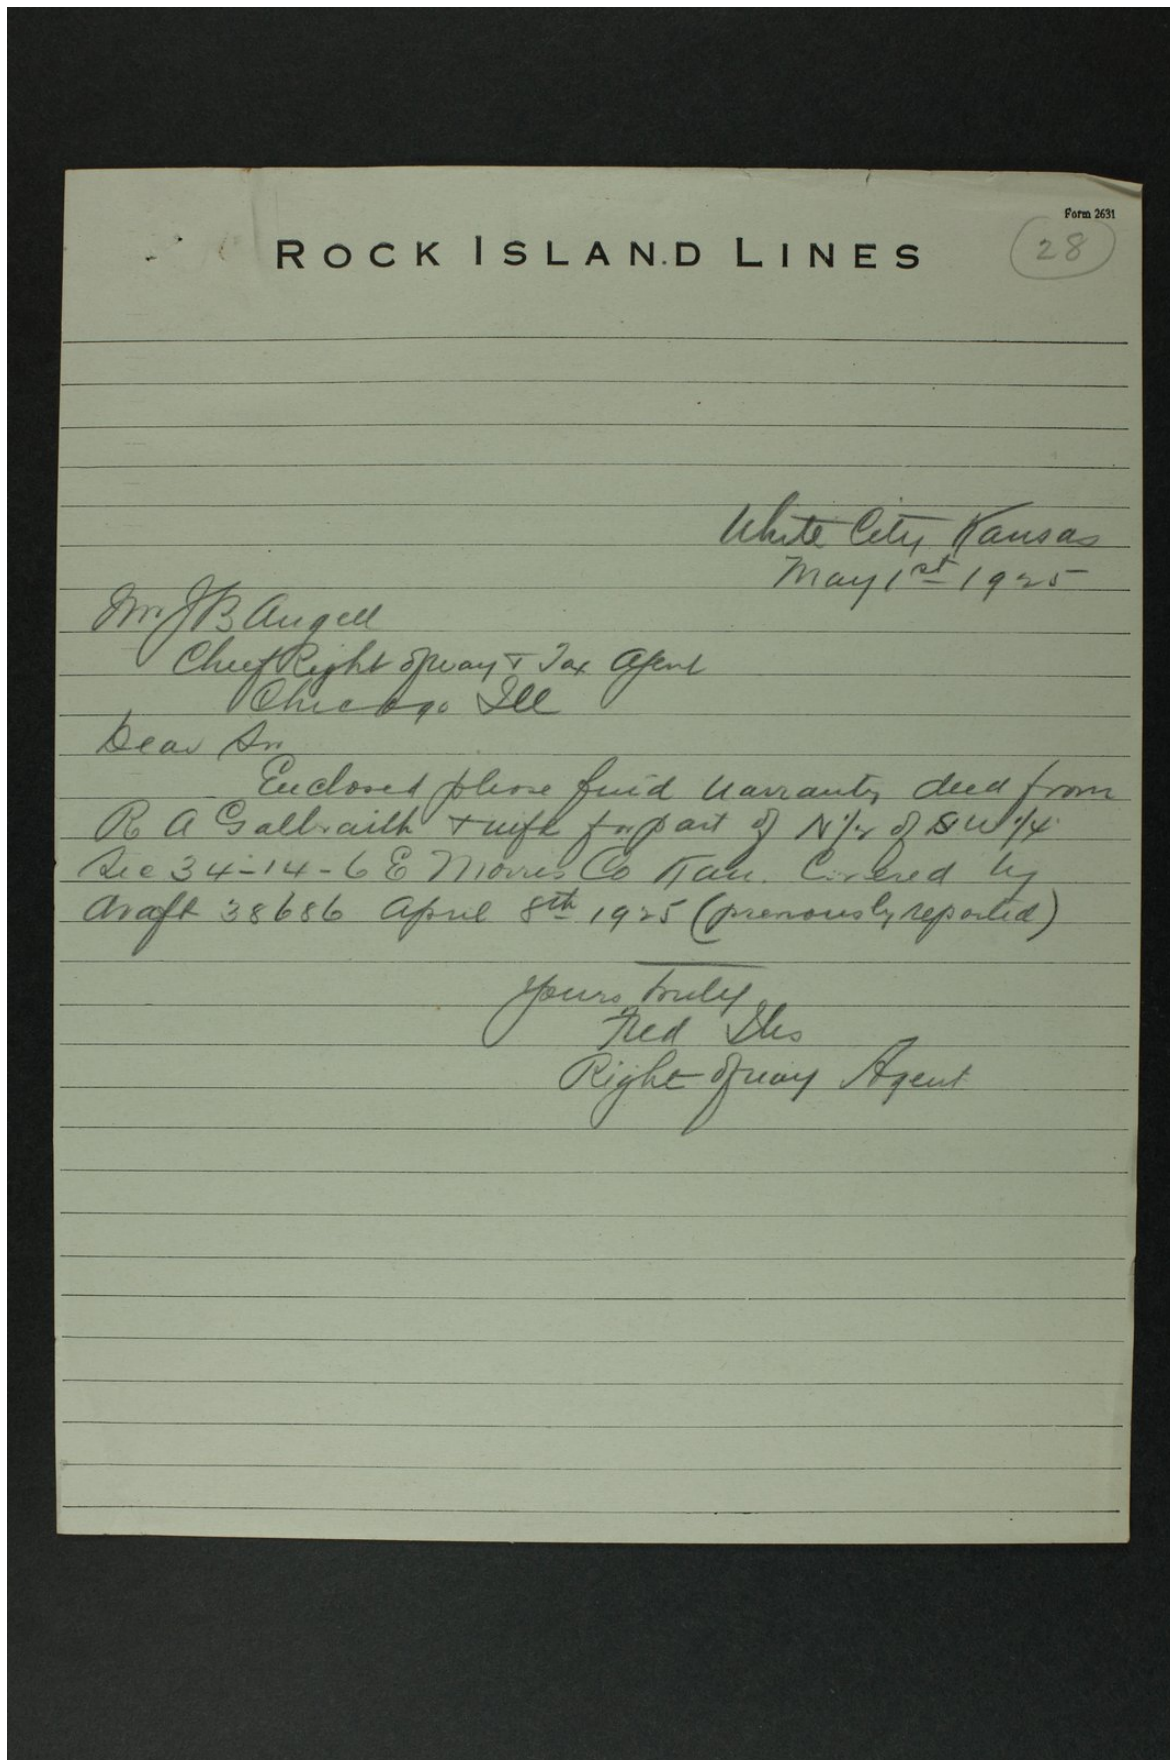 Form 2631
28
ROCK ISLAND LINES
White City Kansas
May 1st 1925
Mr J B Angell
Chief Right of way & Tax Agent
Chicago Ill
Dear Sir
Enclosed please find Warranty deed from
R A Galbraith & wife for part of N 1/2 of SW 1/4
Sec 34-14-6 E Morris Co Kan. Covered by
draft 38686 April 8th 1925 (previously reported)
Yours truly
Fred Iles
Right of way Agent